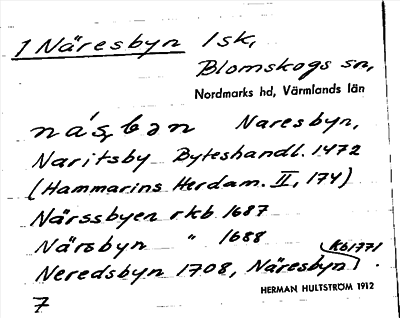 1 Näresbyn 1 sk,
Blomskogs sn,
Nordmarks hd, Värmlands län
Naresbyn,
Naritsby Byteshandl. 1472
(Hammarins Herdam. II, 174)
Närssbyen rkb 1687
Närsbyn " 1688
Neredsbyn 1708, Näresbyn Kb1771.
HERMAN HULTSTRÖM 1912
7